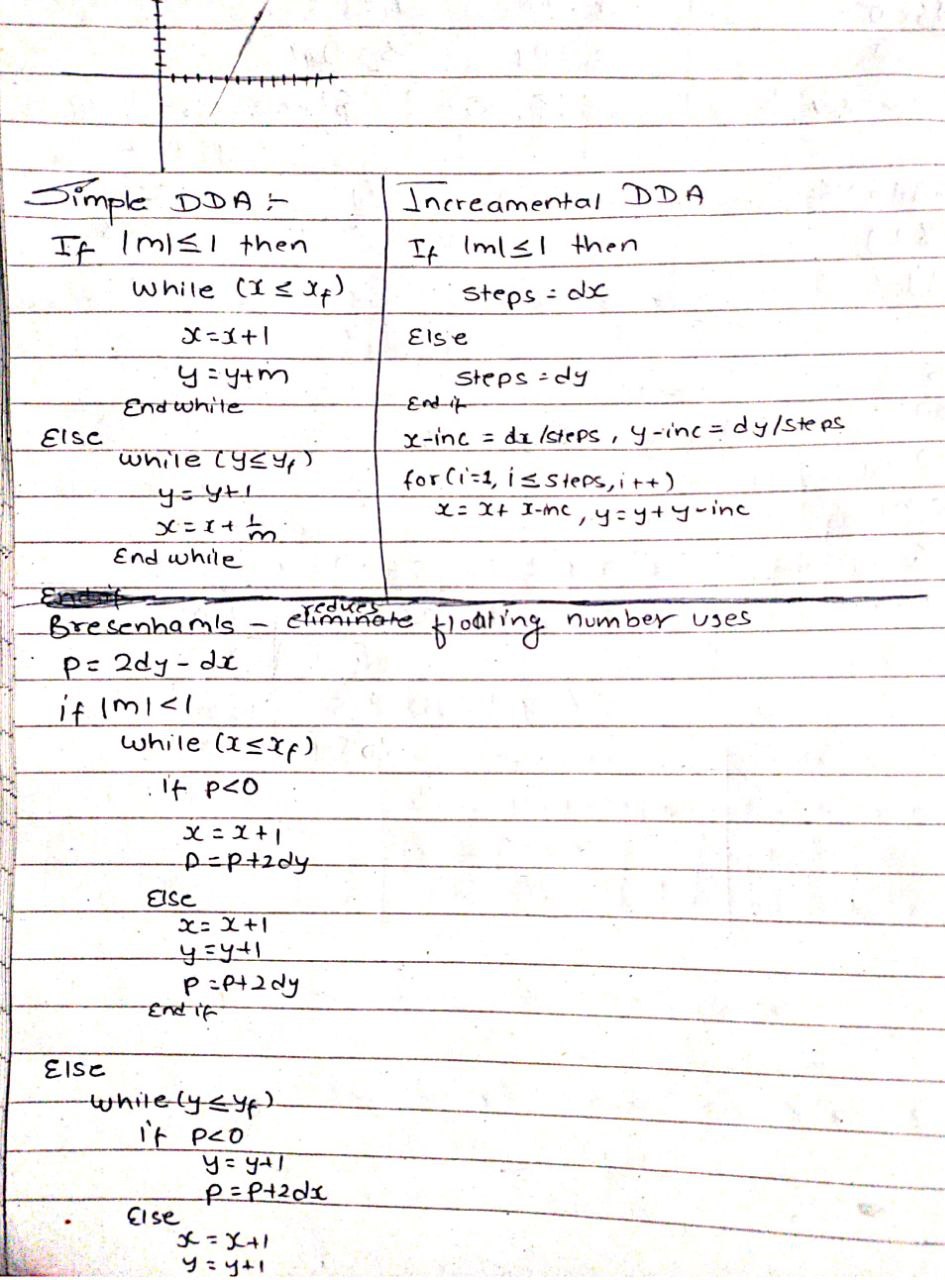 Simple DDA :-
If |m| ≤ 1 then
while (x ≤ xf)
x = x + 1
y = y + m
End while
Else
while (y ≤ yf)
y = y + 1
x = x + 1/m
End while
End if
Increamental DDA
If |m| ≤ 1 then
steps = dx
Else
steps = dy
End if
x-inc = dx/steps, y-inc = dy/steps
for (i=1, i ≤ steps, i++)
x = x + x-inc, y = y + y-inc
Bresenham's - eliminate reduces floating number uses
P = 2dy - dx
if |m| < 1
while (x ≤ xf)
if p<0
x = x + 1
P = P + 2dy
Else
x = x + 1
y = y + 1
P = P + 2dy
End if
Else
while (y ≤ yf)
if p<0
y = y + 1
P = P + 2dx
Else
x = x + 1
y = y + 1